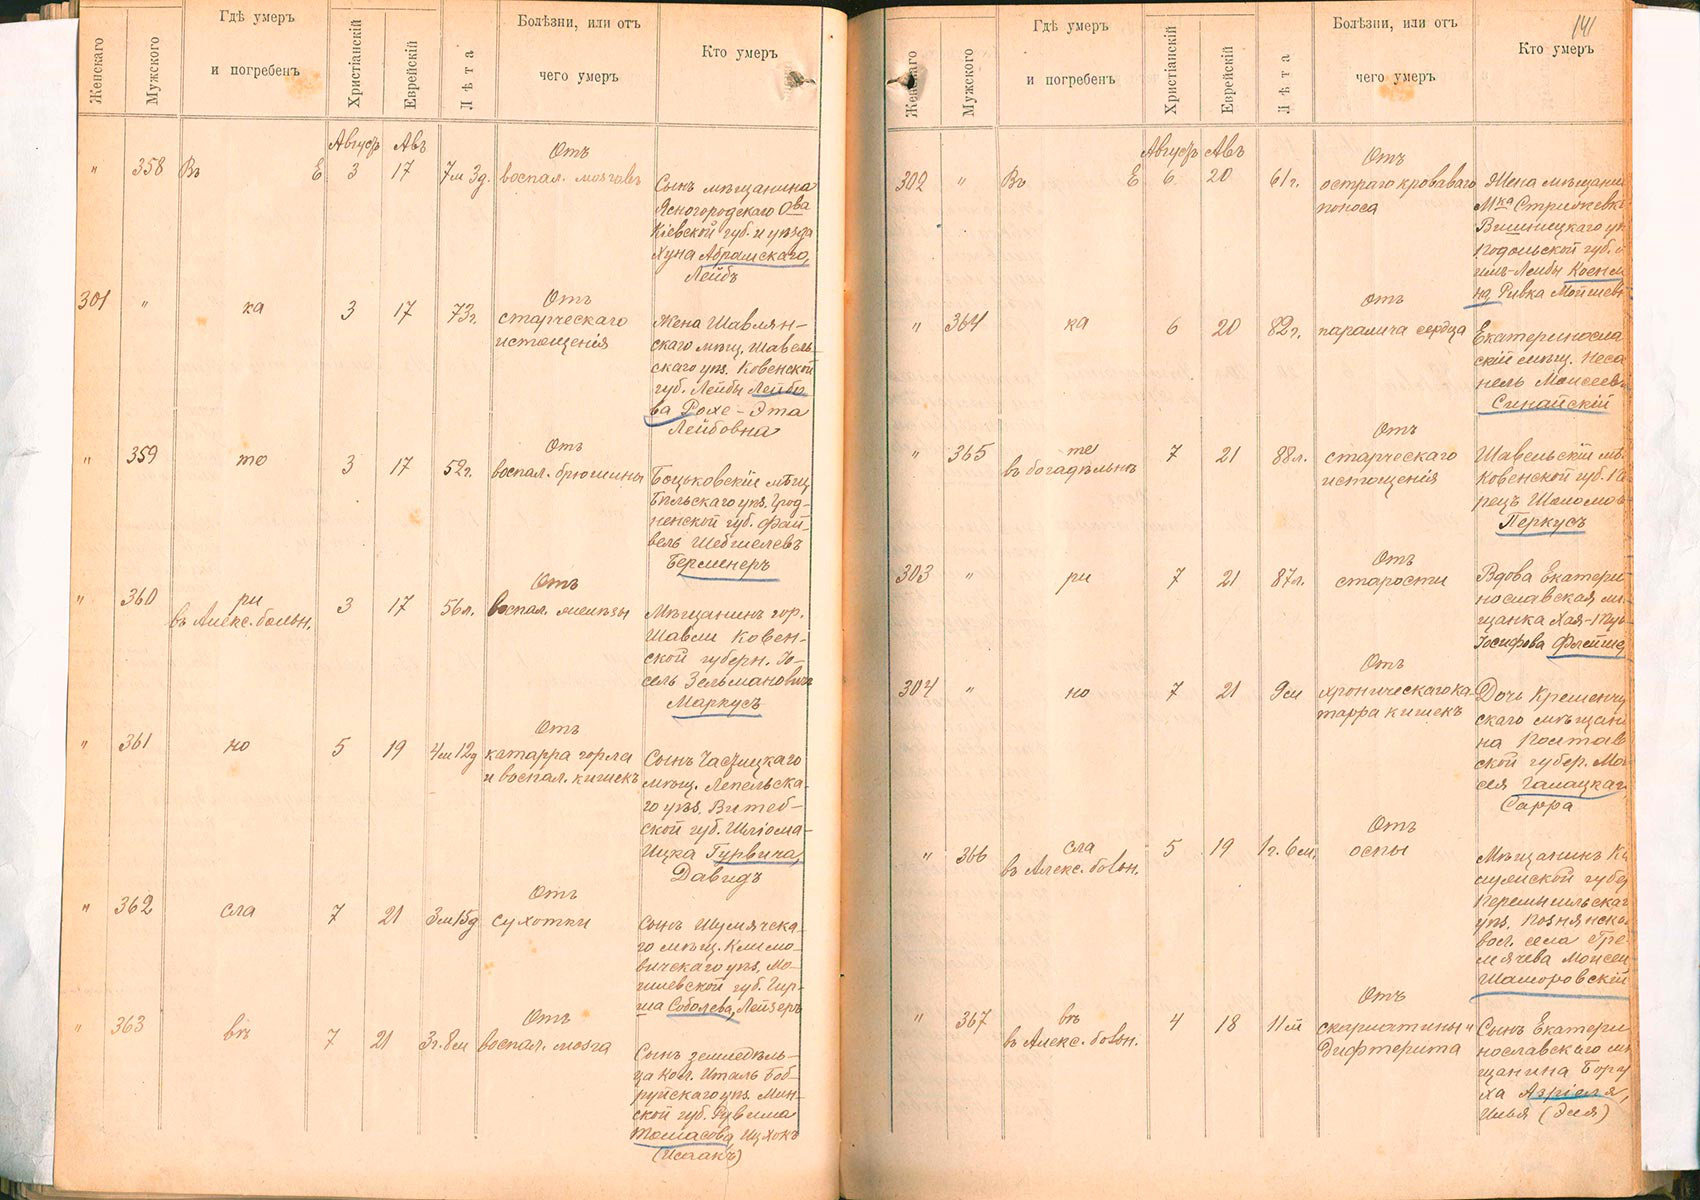 Женскаго
Мужского
Гдѣ умеръ
и погребенъ
Христіанскій
Еврейскій
Лѣта
Болѣзни, или отъ
чего умеръ
Кто умеръ
Августъ Авъ
" 358 Въ Е 3 17 7м 3д.
Отъ
воспал. мозговъ
Сынъ мѣщанина
Ясногородскаго Ова
Кіевской губ. и уѣзда
Хуна Абрамскаго,
Лейбъ
301 " ка 3 17 73г.
Отъ
старческаго
истощенія
Жена Шавлян-
скаго мѣщ. Шавель-
скаго уѣз. Ковенской
губ. Лейбы Лейбо
ва Рохе-Эта
Лейбовна
" 359 то 3 17 52г.
Отъ
воспал. брюшины
Боцьковскій мѣщ
Бѣльскаго уѣз. Грод-
ненской губ. Фай-
вель Шебшелевъ
" 360 ри 3 17 56л.
въ Алекс. больн.
Отъ
воспал.
Мѣщанинъ гор.
Шавли Ковен-
ской губерн. Іо-
сель Зельмановичъ
Маркусъ
" 361 но 5 19 4м 12д
Отъ
катарра горла
и воспал. кишекъ
Сынъ
мѣщ. Лепельска-
го уѣз. Витеб-
ской губ. Шлiома-
Ицка Гурвича,
Давидъ
" 362 сла 7 21 3м 15д
Отъ
сухотки
Сынъ Шумячска-
го мѣщ. Климо-
вичскаго уѣз. Мо-
гилевской губ. Гир-
ша Соболева, Лейзеръ
" 363 въ 7 21 3г. 8м
Отъ
воспал. мозга
Сынъ земледѣль-
ца кол. Италь Боб-
руйскаго уѣз. Мин-
ской губ. Рувима
Томасова, Ицхокъ
(Исаакъ)
141
Женскаго
Мужского
Гдѣ умеръ
и погребенъ
Христіанскій
Еврейскій
Лѣта
Болѣзни, или отъ
чего умеръ
Кто умеръ
Августъ Авъ
302 " Въ Е 6 20 61г.
Отъ
остраго кроваваго
поноса
Жена мѣщанин
Мка Стрижевк
Винницкаго уѣ
Подольской губ.
Лейбы
Ривка Мойшев
" 364 ка 6 20 82г.
Отъ
паралича сердца
Екатериносла
скій мѣщ. Неса
нель Моисеев
Синайскій
" 365 те 7 21 88л.
въ богадѣльнѣ
Отъ
старческаго
истощенія
Шавельскій мѣ
Ковенской губ.
Шоломов
Перкусъ
303 " ри 7 21 87л.
Отъ
старости
Вдова Екатери
нославская мѣ
щанка Хая-
Іосифова Флейше
304 " но 7 21 9м
Отъ
хроническаго ка-
тарра кишекъ
Дочь Кременчу
скаго мѣщани
на Полтав
ской губер. Мо
сея Галацкаг
Сарра
" 366 сла 5 19 1г. 6м,
въ Алекс. больн.
Отъ
оспы
Мѣщанинъ Ка
лужской губер
Перемышльскаг
уѣз.
вол. села Гре
мячева Моисей
Шаморовскій
" 367 въ 4 18 11м
въ Алекс. больн.
Отъ
скарлатины и
дифтерита
Сынъ Екатери
нославскаго мѣ
щанина Бору
ха Азріеля,
Илья (Эля)